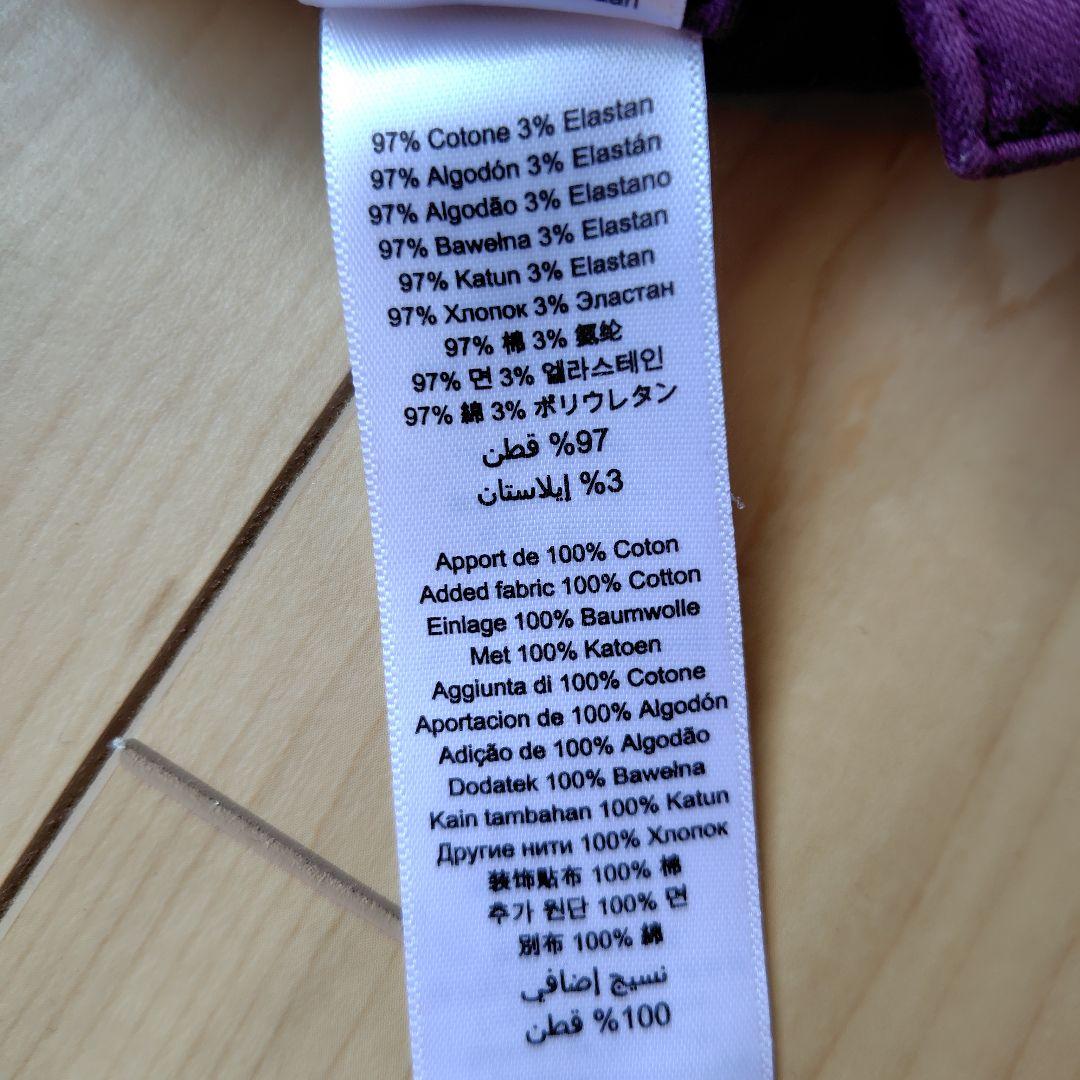 97% Cotone 3% Elastan
97% Algodón 3% Elastán
97% Algodão 3% Elastano
97% Bawełna 3% Elastan
97% Katun 3% Elastan
97% Хлопок 3% Эластан
97% 棉 3% 氨纶
97% 면 3% 엘라스테인
97% 綿 3% ポリウレタン
%97 قطن
%3 إيلاستان
Apport de 100% Coton
Added fabric 100% Cotton
Einlage 100% Baumwolle
Met 100% Katoen
Aggiunta di 100% Cotone
Aportacion de 100% Algodón
Adição de 100% Algodão
Dodatek 100% Bawełna
Kain tambahan 100% Katun
Другие нити 100% Хлопок
装饰贴布 100% 棉
추가 원단 100% 면
別布 100% 綿
نسيج إضافي
%100 قطن